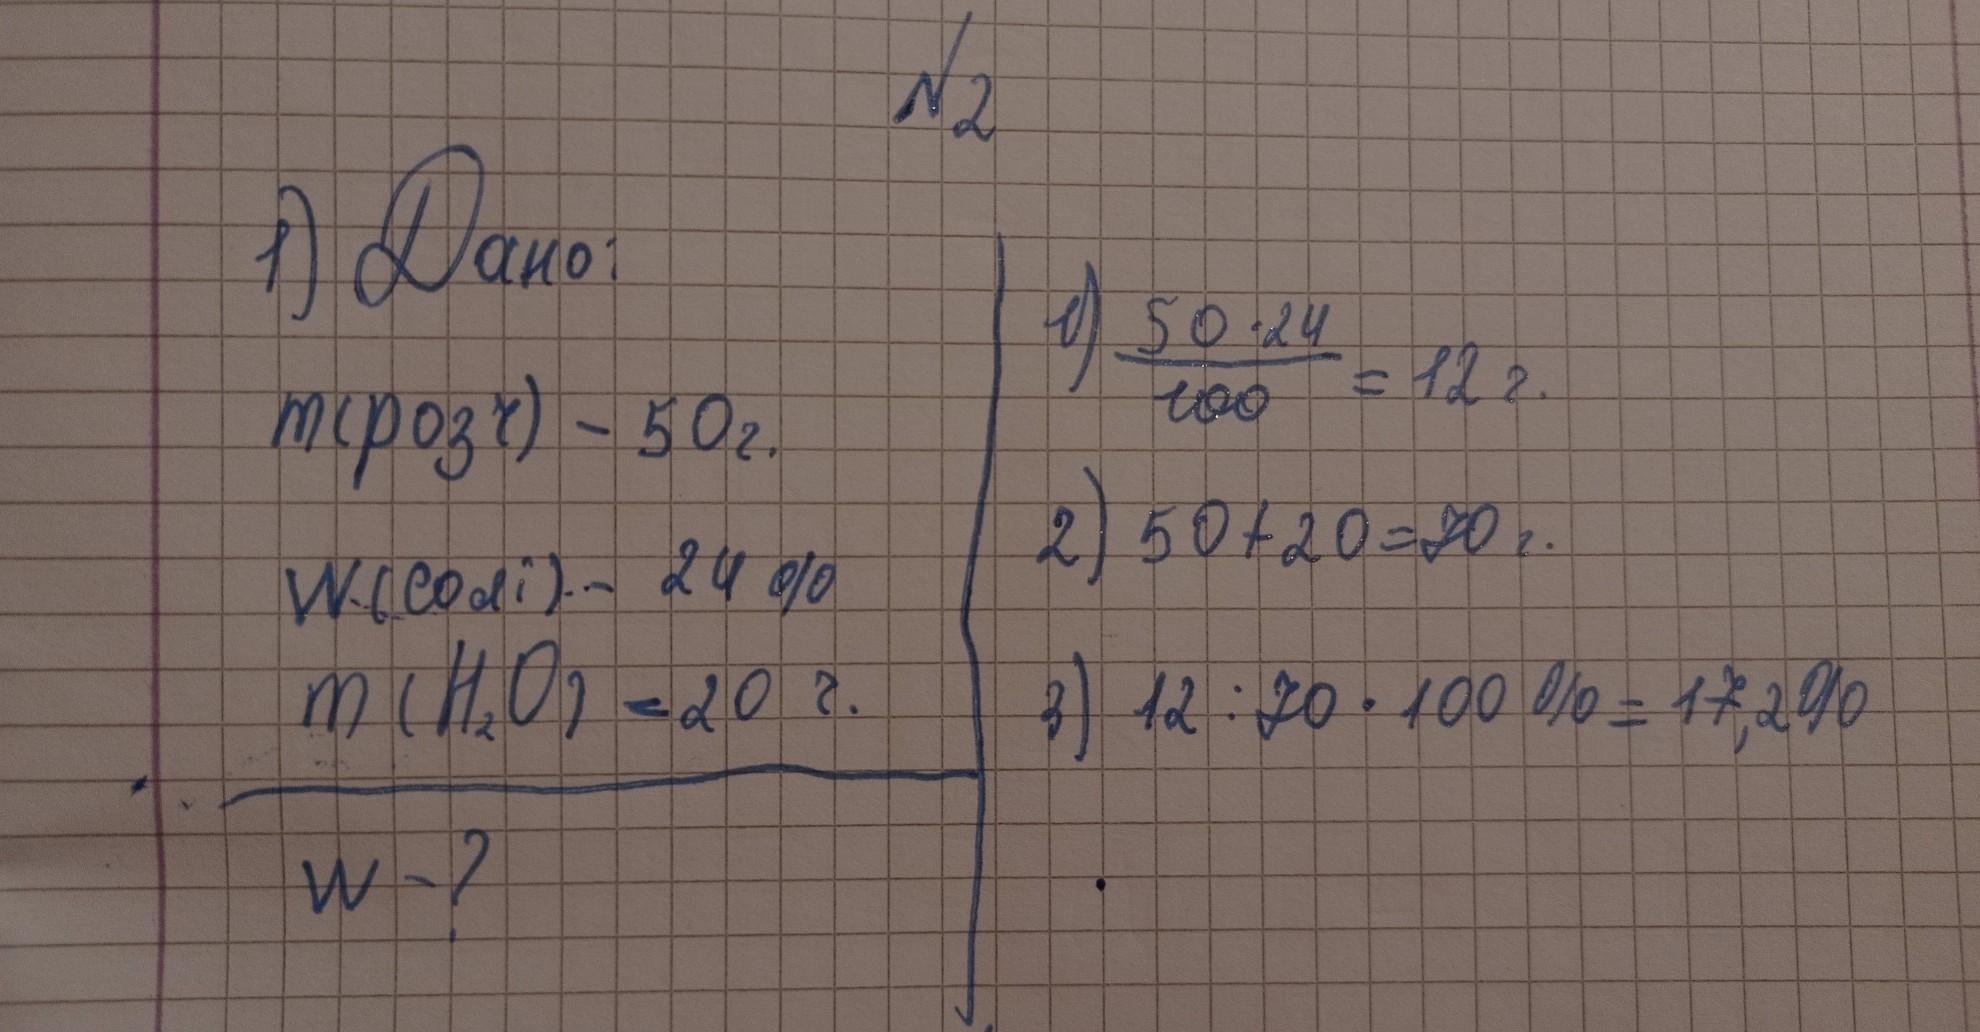 №2
1) Дано:
m(розч) - 50г.
W.(солі).- 24 %
m(H₂O) = 20 г.
W - ?
1) 50·24/100 = 12 г.
2) 50+20=70 г.
3) 12 : 70 · 100 % = 17,2%